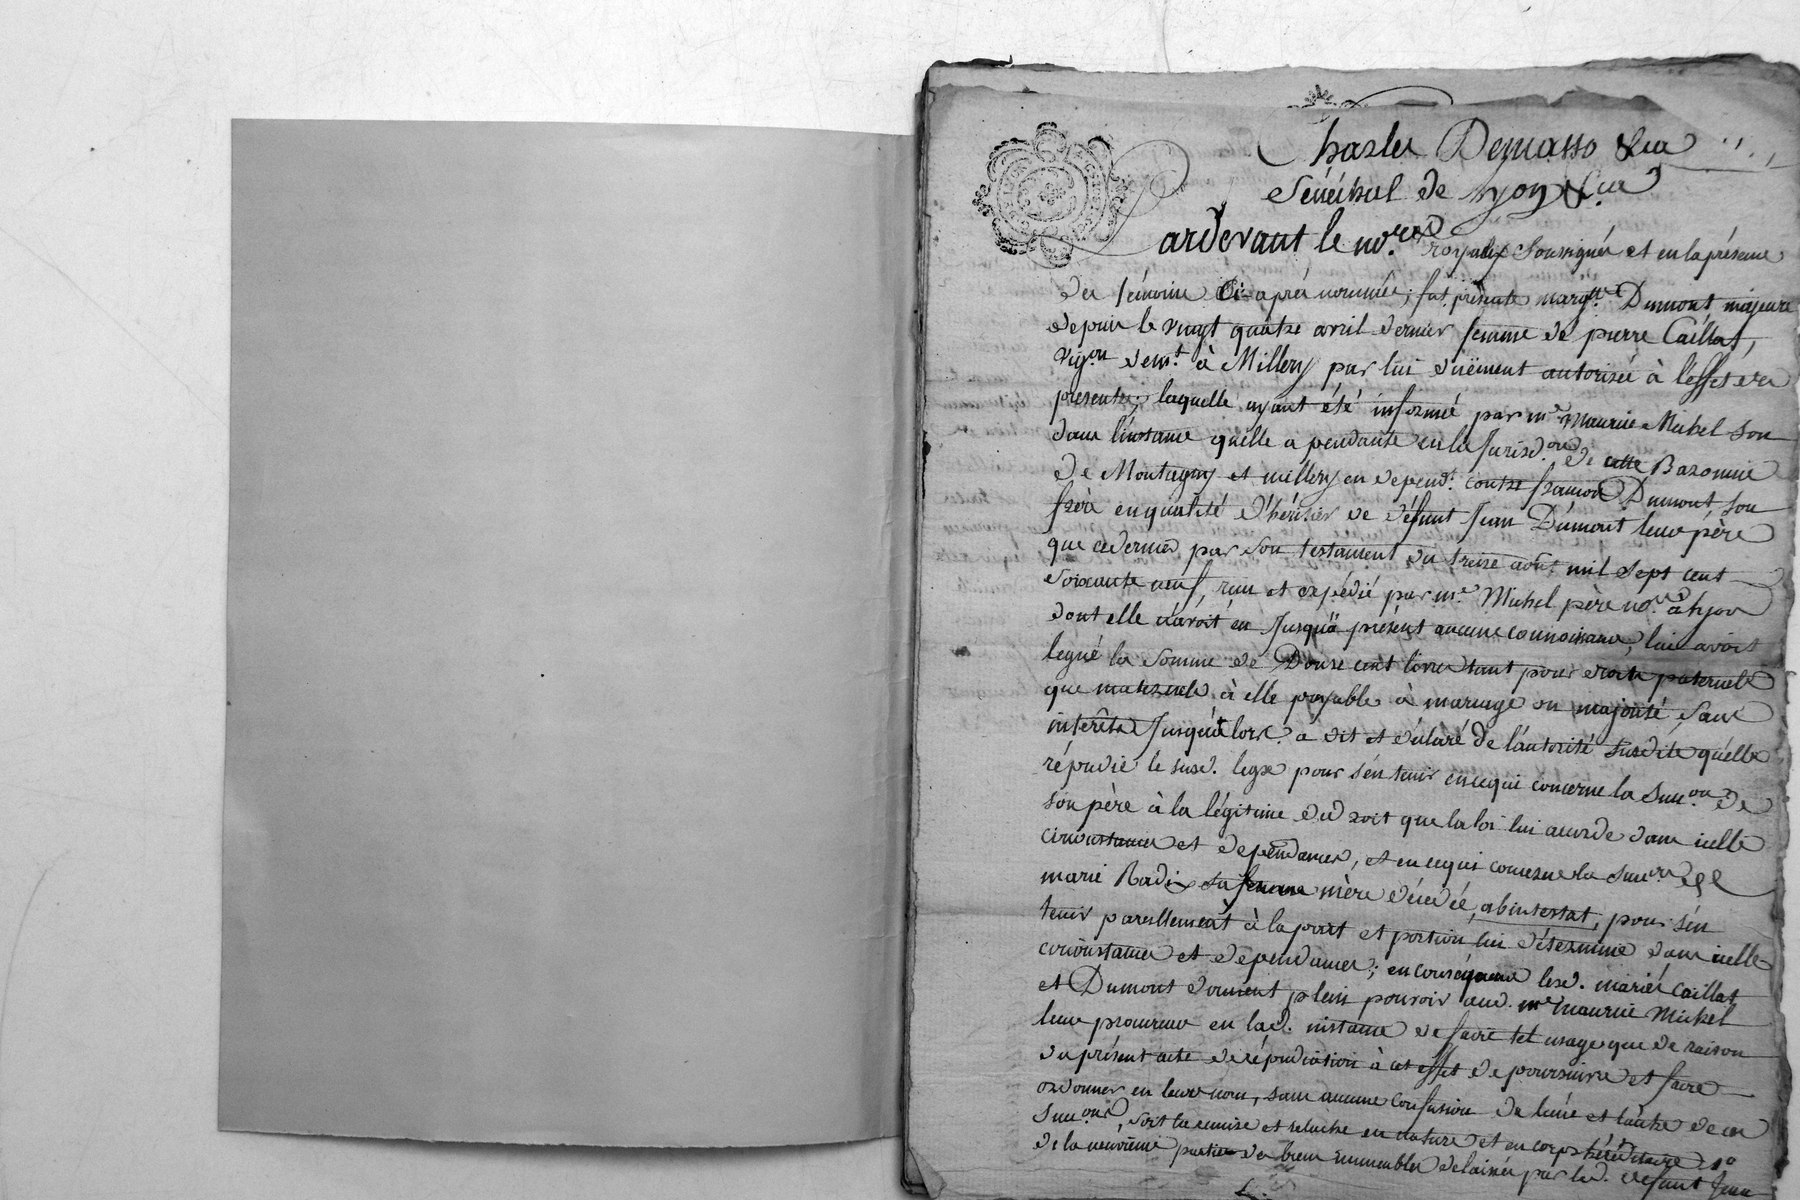 Charles Demasso &ca
Sénéchal de Lyon &ca
Pardevant le nore. royaux soussigné et en la présence
des témoins Ci-après nommés, fut présente margte. Dumont, majeure
depuis le vingt quatre avril dernier femme de pierre Caillat,
vigon. demt. à Millery par lui dûëment autorisée à l'effet des
presentes, laquelle ayant été informée par me. maurice Michel son
dans l'instance qu'elle a pendante en la Jurisdon. de cette Baronnie
de Montagny et millery en dépendt. contre françois Dumont, son
frère en qualité d'héritier de défunt Jean Dumont leur père
que ce dernier par son testament du treize août mil sept cent
soixante neuf, reçu et expédié par me. Michel père nore. à Lyon
dont elle n'avoit eu Jusqu'à présent aucune connoissance, lui avoit
legué la somme de Douze cent livres tant pour droits paternels
que maternels à elle payable à mariage ou majorité, sans
intérêts Jusqu'alors. a dit et déclaré de l'autorité susdite qu'elle
répudie le susd. legs pour s'en tenir en ce qui concerne la succon. de
son père à la légitime du droit que la loi lui accorde dans icelle
circonstances et dépendances, et en ce qui concerne la succon. de
marie Radix sa femme mère décédée, abintestat, pour s'en
tenir pareillement à la part et portion lui déterminé dans icelle
circonstances et dépendances; en conséquence lesd. mariés Caillat
et Dumont donnent plein pouvoir aud. me maurice Michel
leur procureur en lad. instance de faire tel usage que de raison
du présent acte de répudiation à cet effet de poursuivre et faire
ordonner en leur nom, sans aucune confusion de l'une et l'autre de ces
succons, soit la remise et relache en nature et en corps héréditaire 1o
de la neuvième partie des biens Immeubles delaissés par led. défunt Jean